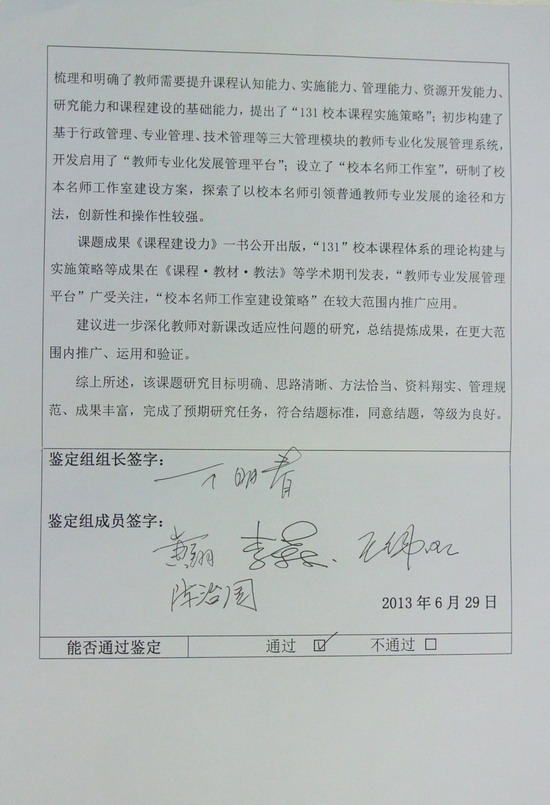 梳理和明确了教师需要提升课程认知能力、实施能力、管理能力、资源开发能力、
研究能力和课程建设的基础能力，提出了“131校本课程实施策略”；初步构建了
基于行政管理、专业管理、技术管理等三大管理模块的教师专业化发展管理系统，
开发启用了“教师专业化发展管理平台”；设立了“校本名师工作室”，研制了校
本名师工作室建设方案，探索了以校本名师引领普通教师专业发展的途径和方
法，创新性和操作性较强。
课题成果《课程建设力》一书公开出版，“131”校本课程体系的理论构建与
实施策略等成果在《课程·教材·教法》等学术期刊发表，“教师专业发展管理
平台”广受关注，“校本名师工作室建设策略”在较大范围内推广应用。
建议进一步深化教师对新课改适应性问题的研究，总结提炼成果，在更大范
围内推广、运用和验证。
综上所述，该课题研究目标明确、思路清晰、方法恰当、资料翔实、管理规
范、成果丰富，完成了预期研究任务，符合结题标准，同意结题，等级为良好。
鉴定组组长签字：
丁明春
鉴定组成员签字：
黄翔
2013年6月29日
能否通过鉴定 通过 ☑ 不通过 □